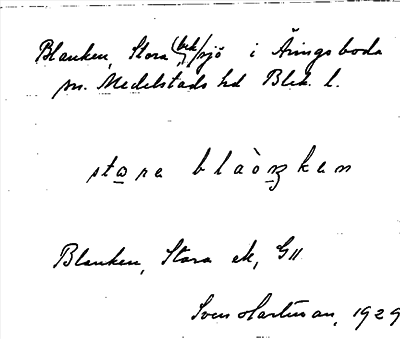 Blanken, Stora (ek/sjö i Äringsboda
sn. Medelstads hd Blek. l.
stara blàonken
Blanken, Stora ek, G11
Sven Hartman, 1929